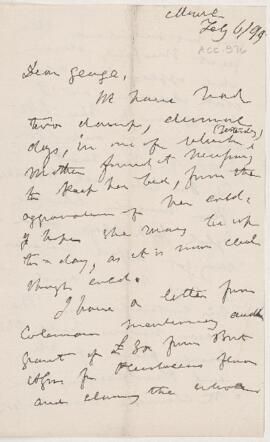 Feb 6/99
ACC 976
Dear George,
We have had
two damp, dismal
days, in one of which
Mother found it necessary
to keep her bed, from the
aggravation of her cold.
I hope she may be up
to-day, as it is now clear
though cold.
I have a letter from
Coleman mentioning another
grant of £ from Brit
for
and closing the whole